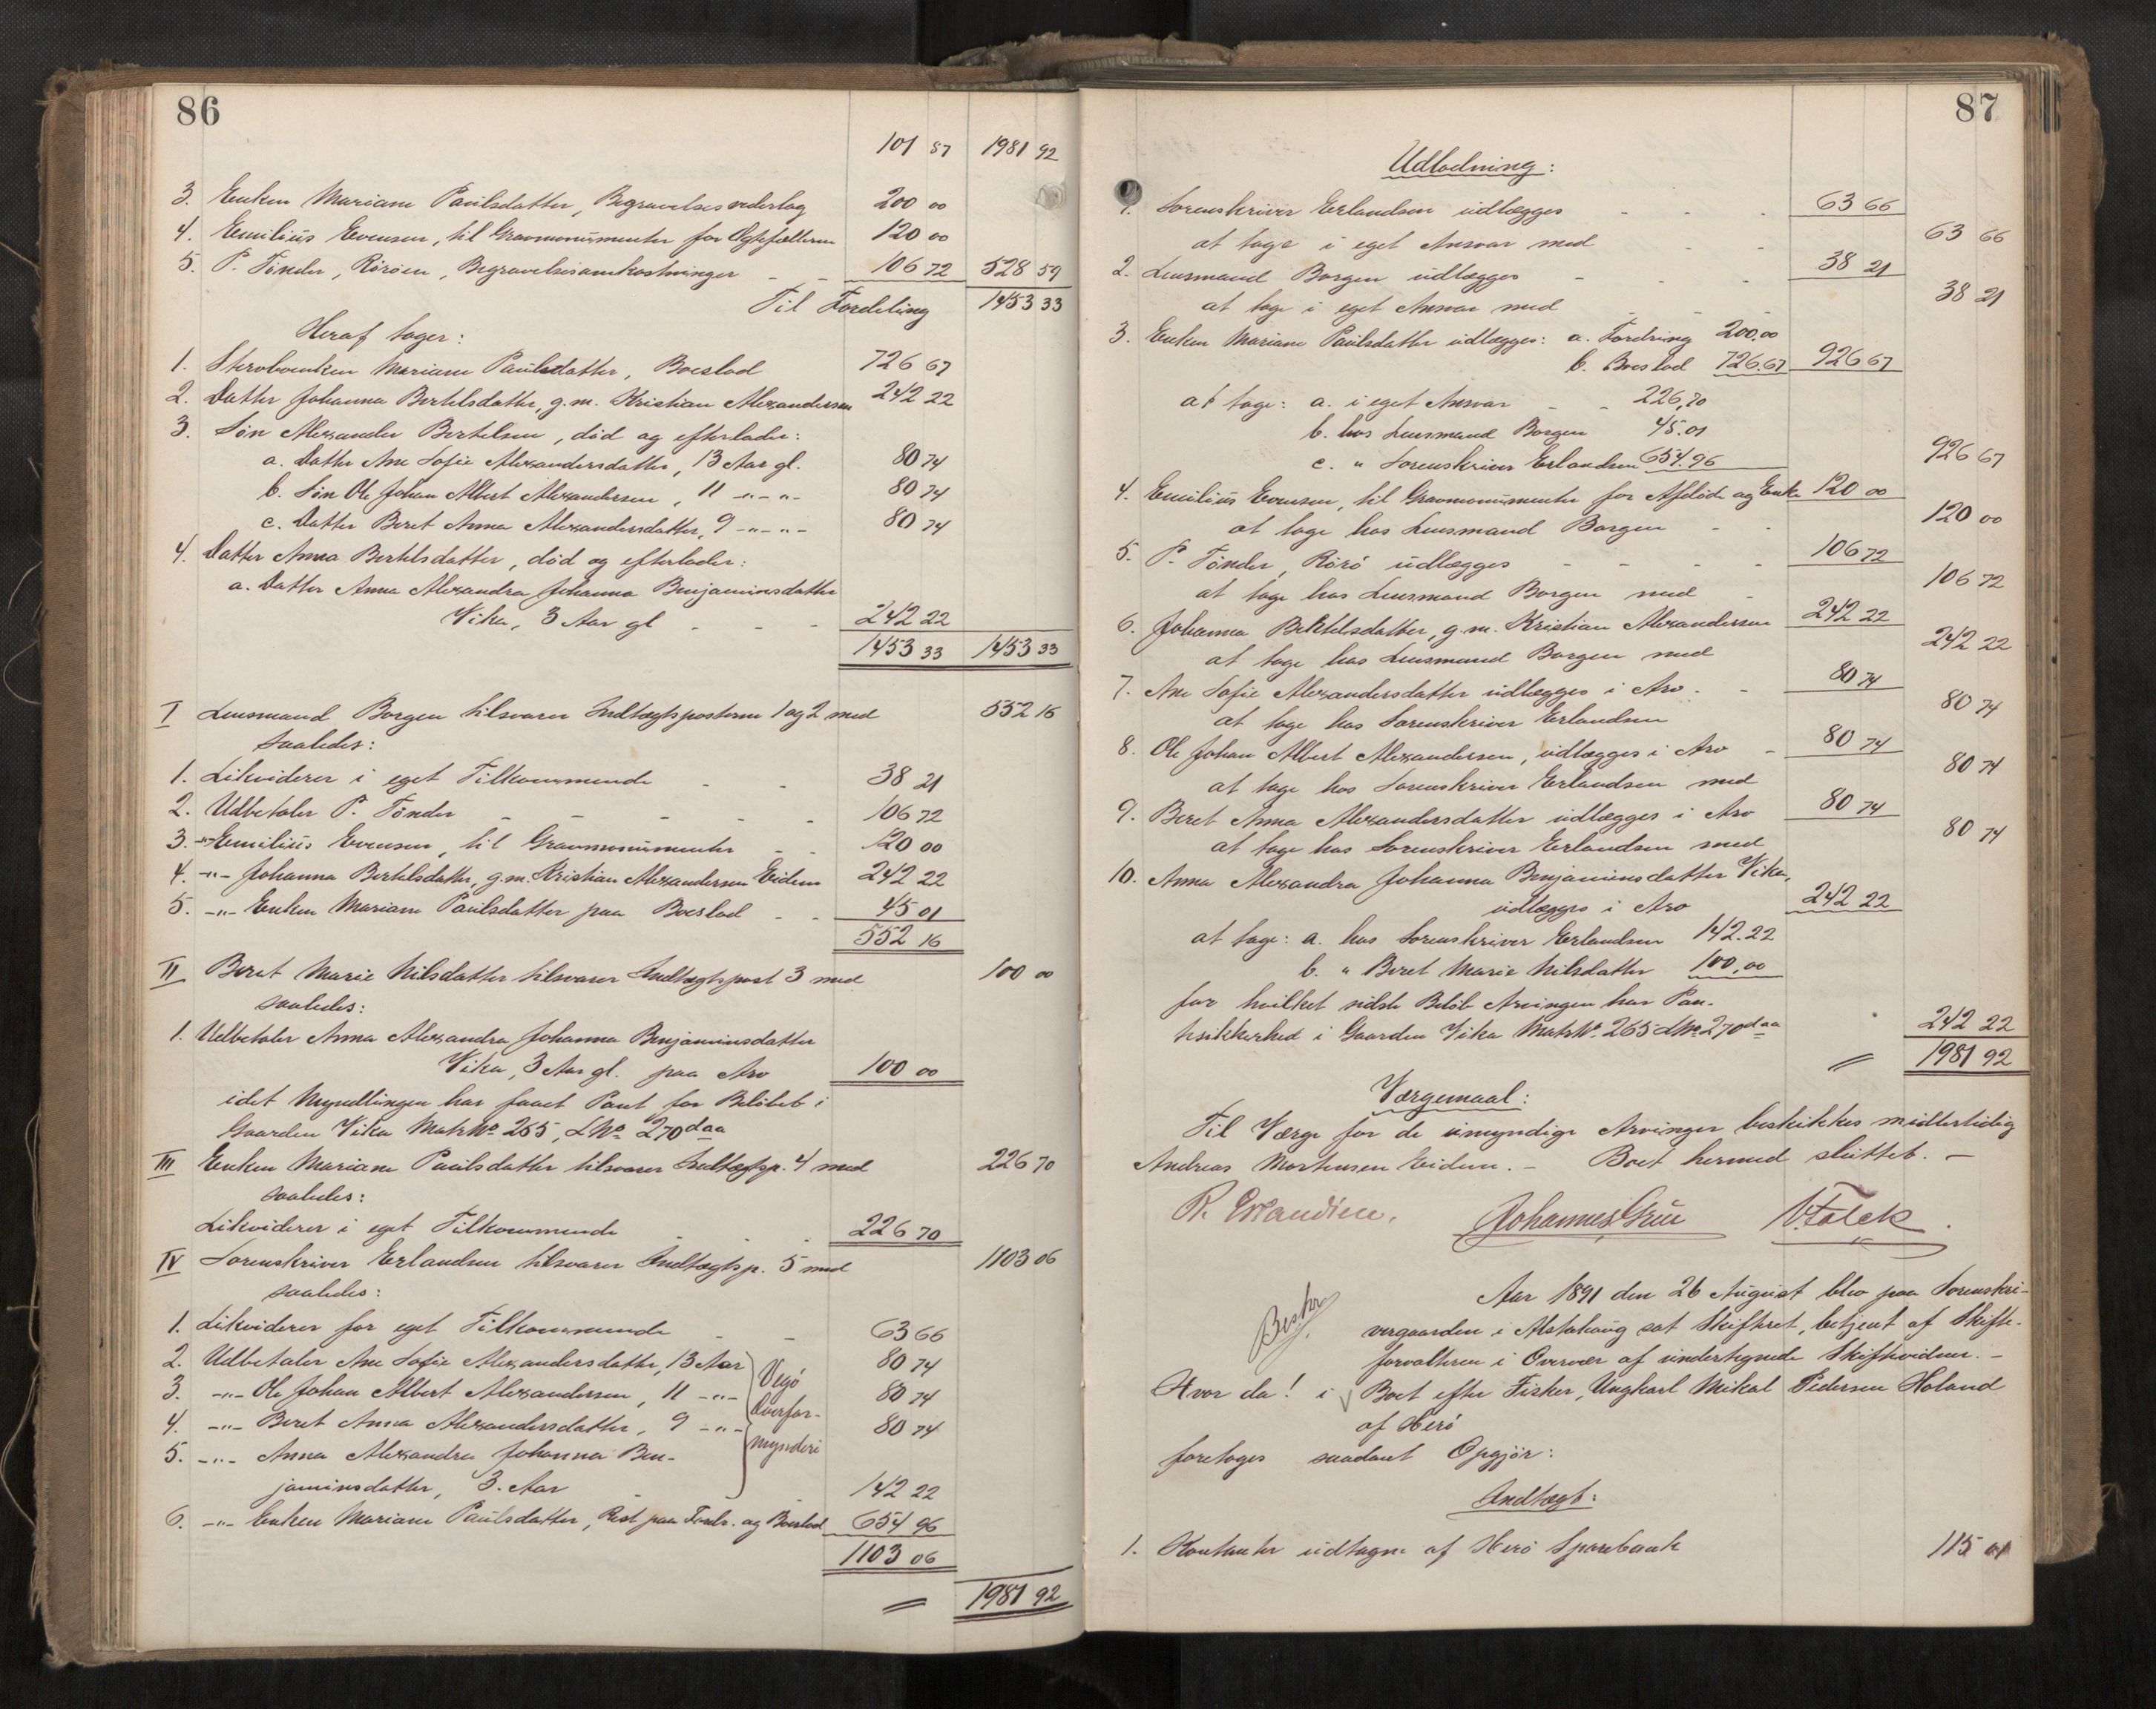 86
101 87 1981 92
3. Enken Mariane Paulsdatter, Begravelsesvederlag 200 00
4. Emilius Evensen, til Gravmonumenter for Ægtefællerne 120 00
5. P. Tönder, Röröen, Begravelsesomkostninger - - 106 72 528 59
Til Fordeling 1453 33
Heraf tager:
1. Skrøboenken Mariane Paulsdatter, Boeslod 726 67
2. Datter Johanna Bertelsdatter, g.m. Kristian Alexandersen 242 22
3. Sön Alexander Bertelsen, död og efterlader:
a. Datter Ane Sofie Alexandersdatter, 13 Aar gl. 80 74
b. Sön Ole Johan Albert Alexandersen, 11 -"-"- 80 74
c. Datter Beret Anna Alexandersdatter, 9 -"-"- 80 74
4. Datter Anna Bertelsdatter, död og efterlader:
a. Datter Anna Alexandra Johanna Benjaminsdatter
Vika, 3 Aar gl - - - 242 22
1453 33 1453 33
I Lensmand Borgen tilsvarer Indtægtsposterne 1 og 2 med 552 16
saaledes:
1. Likviderer i eget Tilkommende - - 38 21
2. Udbetaler P. Tönder - - - - 106 72
3. -"- Emilius Evensen, til Gravmonumenter - - 120 00
4. -"- Johanna Bertelsdatter, g.m. Kristian Alexandersen Eidem 242 22
5. -"- Enken Mariane Paulsdatter paa Boeslod - - 45 01
552 16
II Beret Marie Nilsdatter tilsvarer Indtægtspost 3 med 100 00
saaledes:
1. Udbetaler Anna Alexandra Johanna Benjaminsdatter
Vika, 3 Aar gl. paa Arv 100 00
idet Myndlingen har faaet Pant for Belöbet i
Gaarden Vika Matr No 265, LNo 270 daa
III Enken Mariane Paulsdatter tilsvarer Indtægtsp. 4 med 226 70
saaledes:
Likviderer i eget Tilkommende - - - 226 70
IV Sorenskriver Erlandsen tilsvarer Indtægtsp. 5 med 1103 06
saaledes:
1. Likviderer for eget Tilkommende - - 63 66
2. Udbetaler Ane Sofie Alexandersdatter, 13 Aar 80 74
3. -"- Ole Johan Albert Alexandersen, 11 -"- 80 74
4. -"- Beret Anna Alexandersdatter, 9 -"- 80 74
5. -"- Anna Alexandra Johanna Ben-
jaminsdatter, 3. Aar - - 142 22
Vegö
Overfor-
mynderi
6. -"- Enken Mariane Paulsdatter, Rest paa Fordr. og Boeslod 654 96
1103 06
= 1981 92
87
Udlodning:
1. Sorenskriver Erlandsen udlægges - - - 63 66
at tage i eget Ansvar med - - 63 66
2. Lensmand Borgen udlægges - - - 38 21
at tage i eget Ansvar med - - 38 21
3. Enken Mariane Paulsdatter udlægges: a. Fordring 200,00
b. Boeslod 726.67 926 67
at tage: a. i eget Ansvar - - 226,70
b. hos Lensmand Borgen 45.01
c. " Sorenskriver Erlandsen 654.96 926 67
4. Emilius Evensen, til Gravmonumenter for Afdöde og Enke 120 00
at tage hos Lensmand Borgen - - 120 00
5. P. Tönder, Rörö udlægges - - - - 106 72
at tage hos Lensmand Borgen med - 106 72
6. Johanna Bertelsdatter, g.m. Kristian Alexandersen 242 22
at tage hos Lensmand Borgen med 242 22
7. Ane Sofie Alexandersdatter udlægges i Arv. - 80 74
at tage hos Sorenskriver Erlandsen 80 74
8. Ole Johan Albert Alexandersen, udlægges i Arv - 80 74
at tage hos Sorenskriver Erlandsen med 80 74
9. Beret Anna Alexandersdatter udlægges i Arv 80 74
at tage hos Sorenskriver Erlandsen med 80 74
10. Anna Alexandra Johanna Benjaminsdatter Vika,
udlægges i Arv 242 22
at tage: a. hos Sorenskriver Erlandsen 142.22
b. " Beret Marie Nilsdatter 100,00
for hvilket sidste Belöb Arvingen har Pan-
tesikkerhed i Gaarden Vika Matr No 265 LNo 270 daa 242 22
= 1981 92
Værgemaal:
Til Værge for de umyndige Arvinger beskikkes midlertidig
Andreas Mortensen Eidem. - Boet hermed sluttet. -
R. Erlandsen. Johannes Grüe V. Falck.
Aar 1891 den 26 August blev paa Sorenskri-
vergaarden i Alstahaug sat Skifteret, betjent af Skifte-
forvalteren i Overvær af undertegnede Skiftevidner. -
Hvor da! i Boet efter Fisker, Ungkarl Mikal Pedersen Holand
af Herö
foretages saadant Opgjör:
Indtægt:
1. Kontanter udtagne af Herö Sparebank 115 01